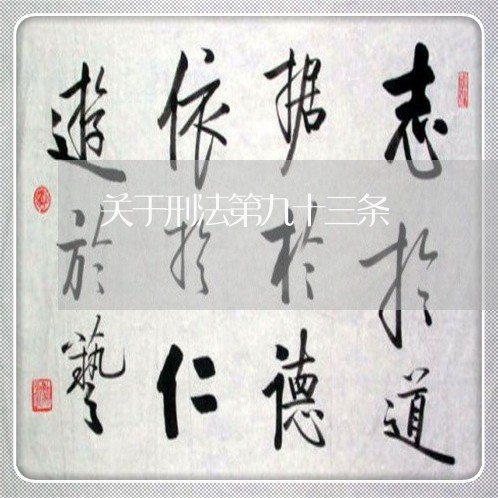 志於道
据於德
依於仁
遊於藝
关于刑法第九十三条